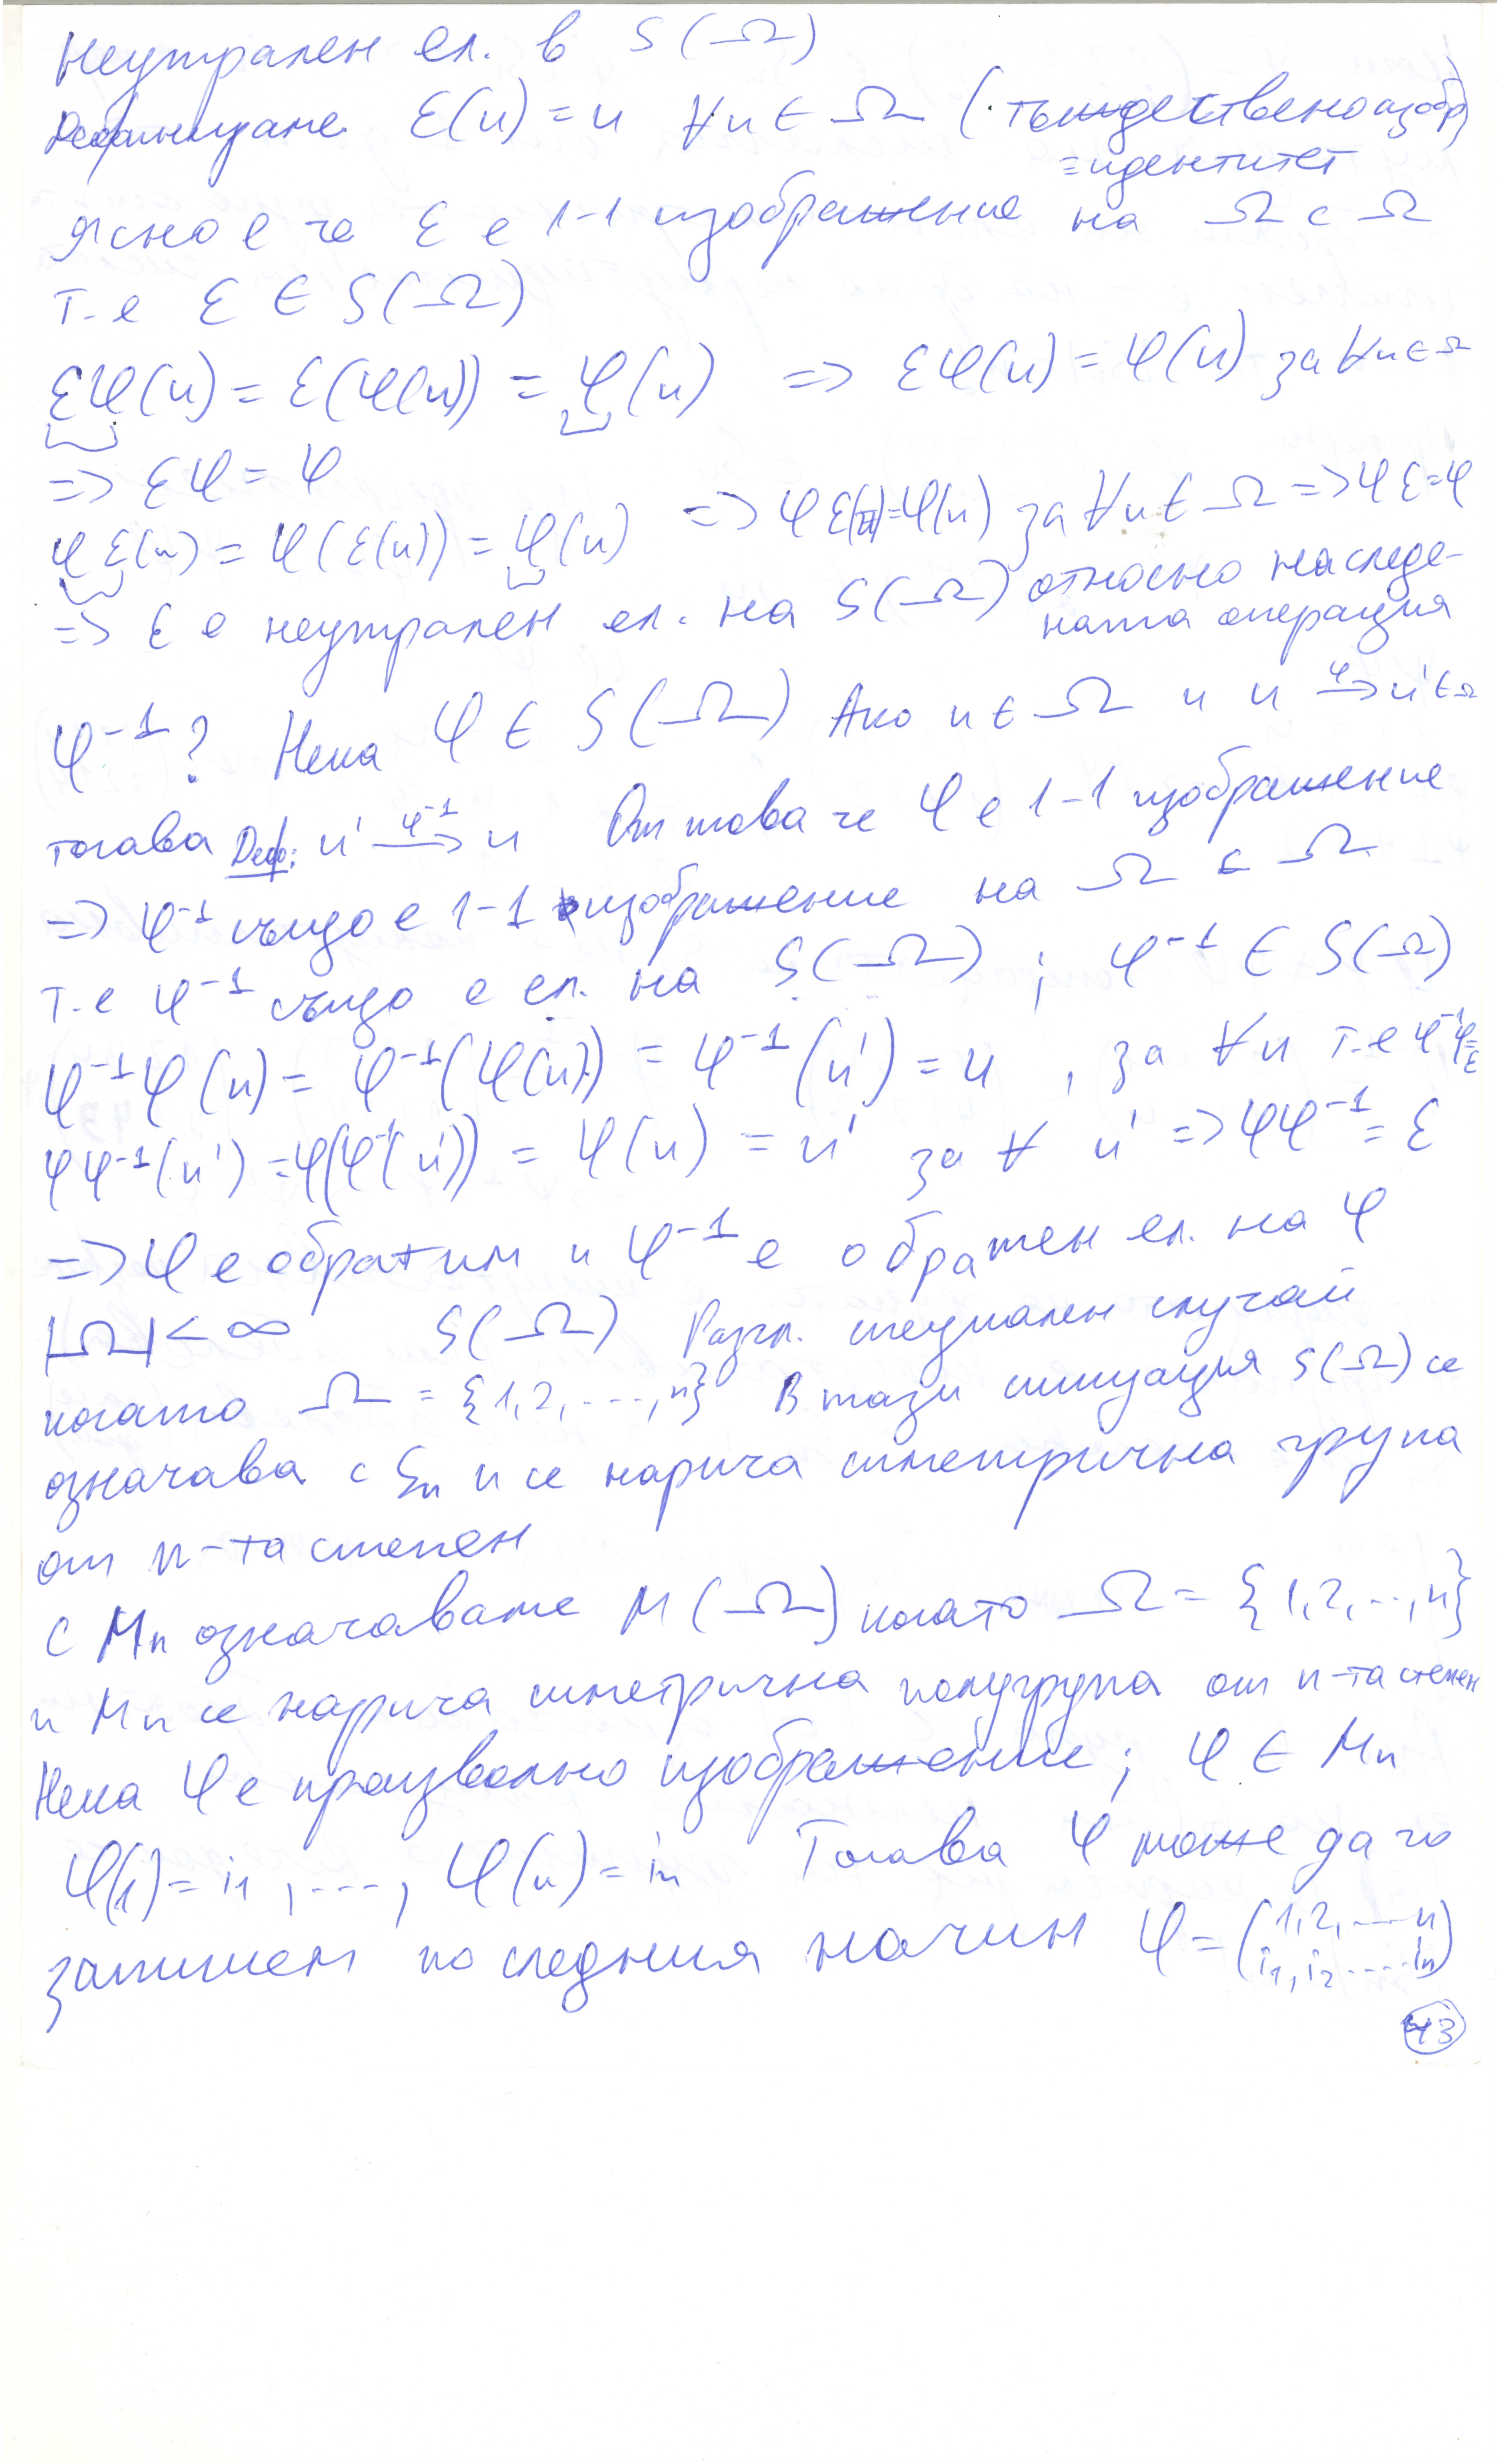 Неутрален ел. в S(Ω)
Дефинираме ε(u) = u ∀u ∈ Ω (тъждествено изобр)
= идентитет
Ясно е че ε е 1-1 изображение на Ω с Ω
т.е ε ∈ S(Ω)
εφ(u) = ε(φ(u)) = φ(u) => εφ(u) = φ(u) за ∀u ∈ Ω
=> εφ = φ
φε(u) = φ(ε(u)) = φ(u) => φε(u) = φ(u) за ∀u ∈ Ω => φε = φ
=> ε е неутрален ел. на S(Ω) относно наследе-
ната операция
φ⁻¹? Нека φ ∈ S(Ω) Ако u ∈ Ω и u →^φ u' ∈ Ω
тогава Деф: u' →^φ⁻¹ u От това че φ е 1-1 изображение
=> φ⁻¹ също е 1-1 изображение на Ω с Ω
т.е φ⁻¹ също е ел. на S(Ω) ; φ⁻¹ ∈ S(Ω)
φ⁻¹φ(u) = φ⁻¹(φ(u)) = φ⁻¹(u') = u , за ∀u т.е φ⁻¹φ = ε
φφ⁻¹(u') = φ(φ⁻¹(u')) = φ(u) = u' за ∀ u' => φφ⁻¹ = ε
=> φ е обратим и φ⁻¹ е обратен ел. на φ
|Ω| < ∞ S(Ω) Разгл. специален случай
когато Ω = {1,2,...,n} В тази ситуация S(Ω) се
означава с Sn и се нарича симетрична група
от n-та степен
С Mn означаваме M(Ω) когато Ω = {1,2,..,n}
и Mn се нарича симетрична полугрупа от n-та степен
Нека φ е произволно изображение; φ ∈ Mn
φ(1) = i₁ , ..., φ(n) = in Тогава φ може да го
запишем по следния начин φ = (1,2,....n
i₁,i₂....in)
43